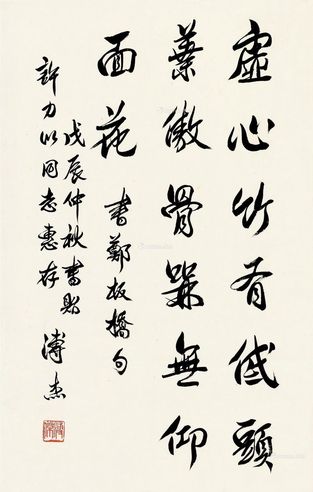 虛心竹有低頭
葉傲骨槑無仰
面花 書鄭板橋句
戊辰仲秋書贈
許力以同志惠存 溥杰